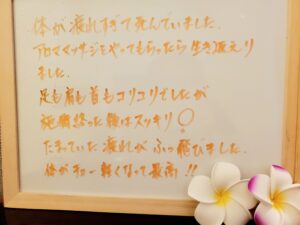 体が疲れすぎて死んでいました。
アロママッサージをやってもらったら生き返えり
ました。
足も肩も首もコリコリでしたが
施術終った後はスッキリ
たまっていた疲れがふっ飛びました。
体が 軽くなって最高!!